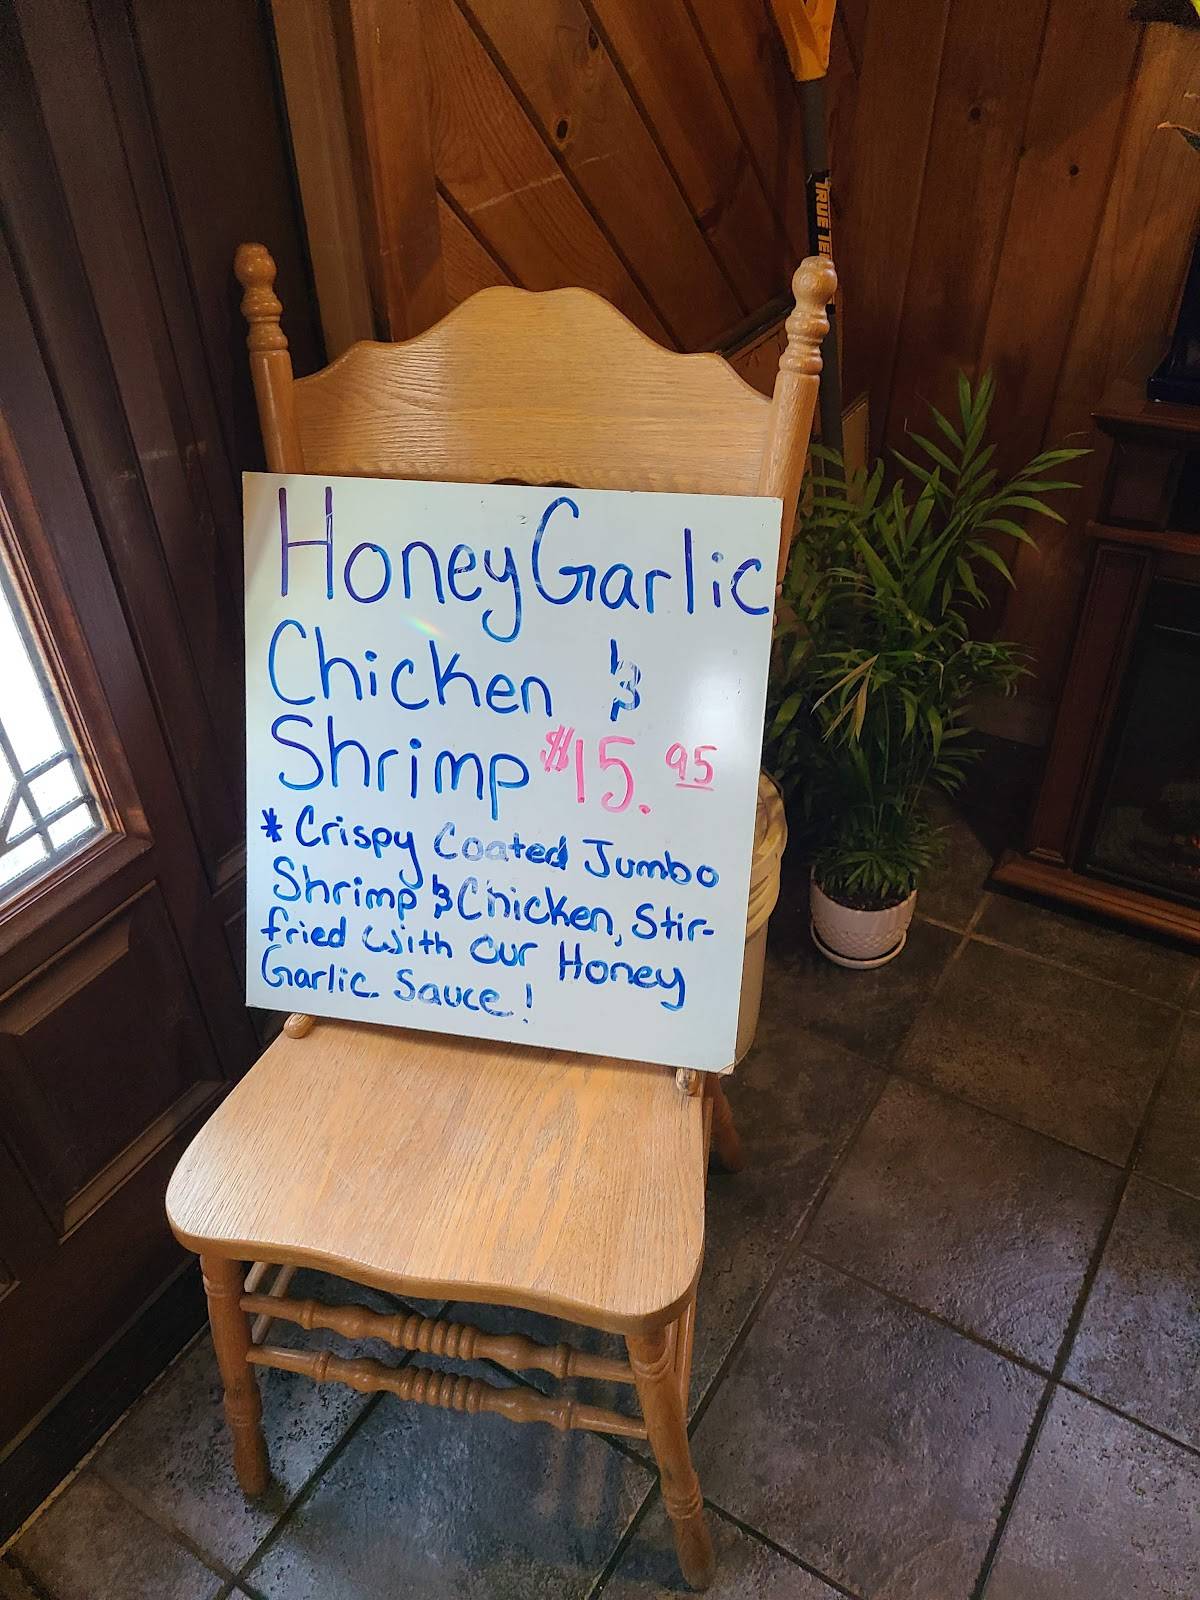 Honey Garlic
Chicken &
Shrimp $15.95
* Crispy Coated Jumbo
Shrimp & Chicken, Stir-
fried with our Honey
Garlic Sauce!
TRUE TE